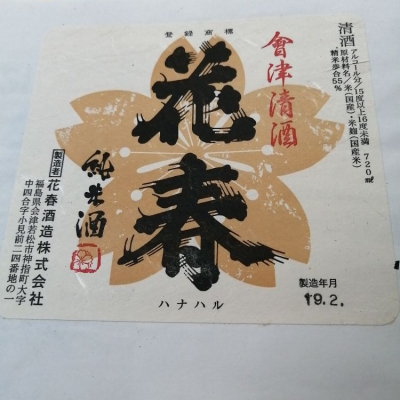 登録商標
清酒
アルコール分/15度以上16度未満 720ml
原材料名/米(国産)・米麹(国産米)
精米歩合55%
會津清酒
花春
ハナハル
純米酒
製造者 花春酒造株式会社
福島県会津若松市神指町大字
中四合字小見前二四番地の一
製造年月
19.2.